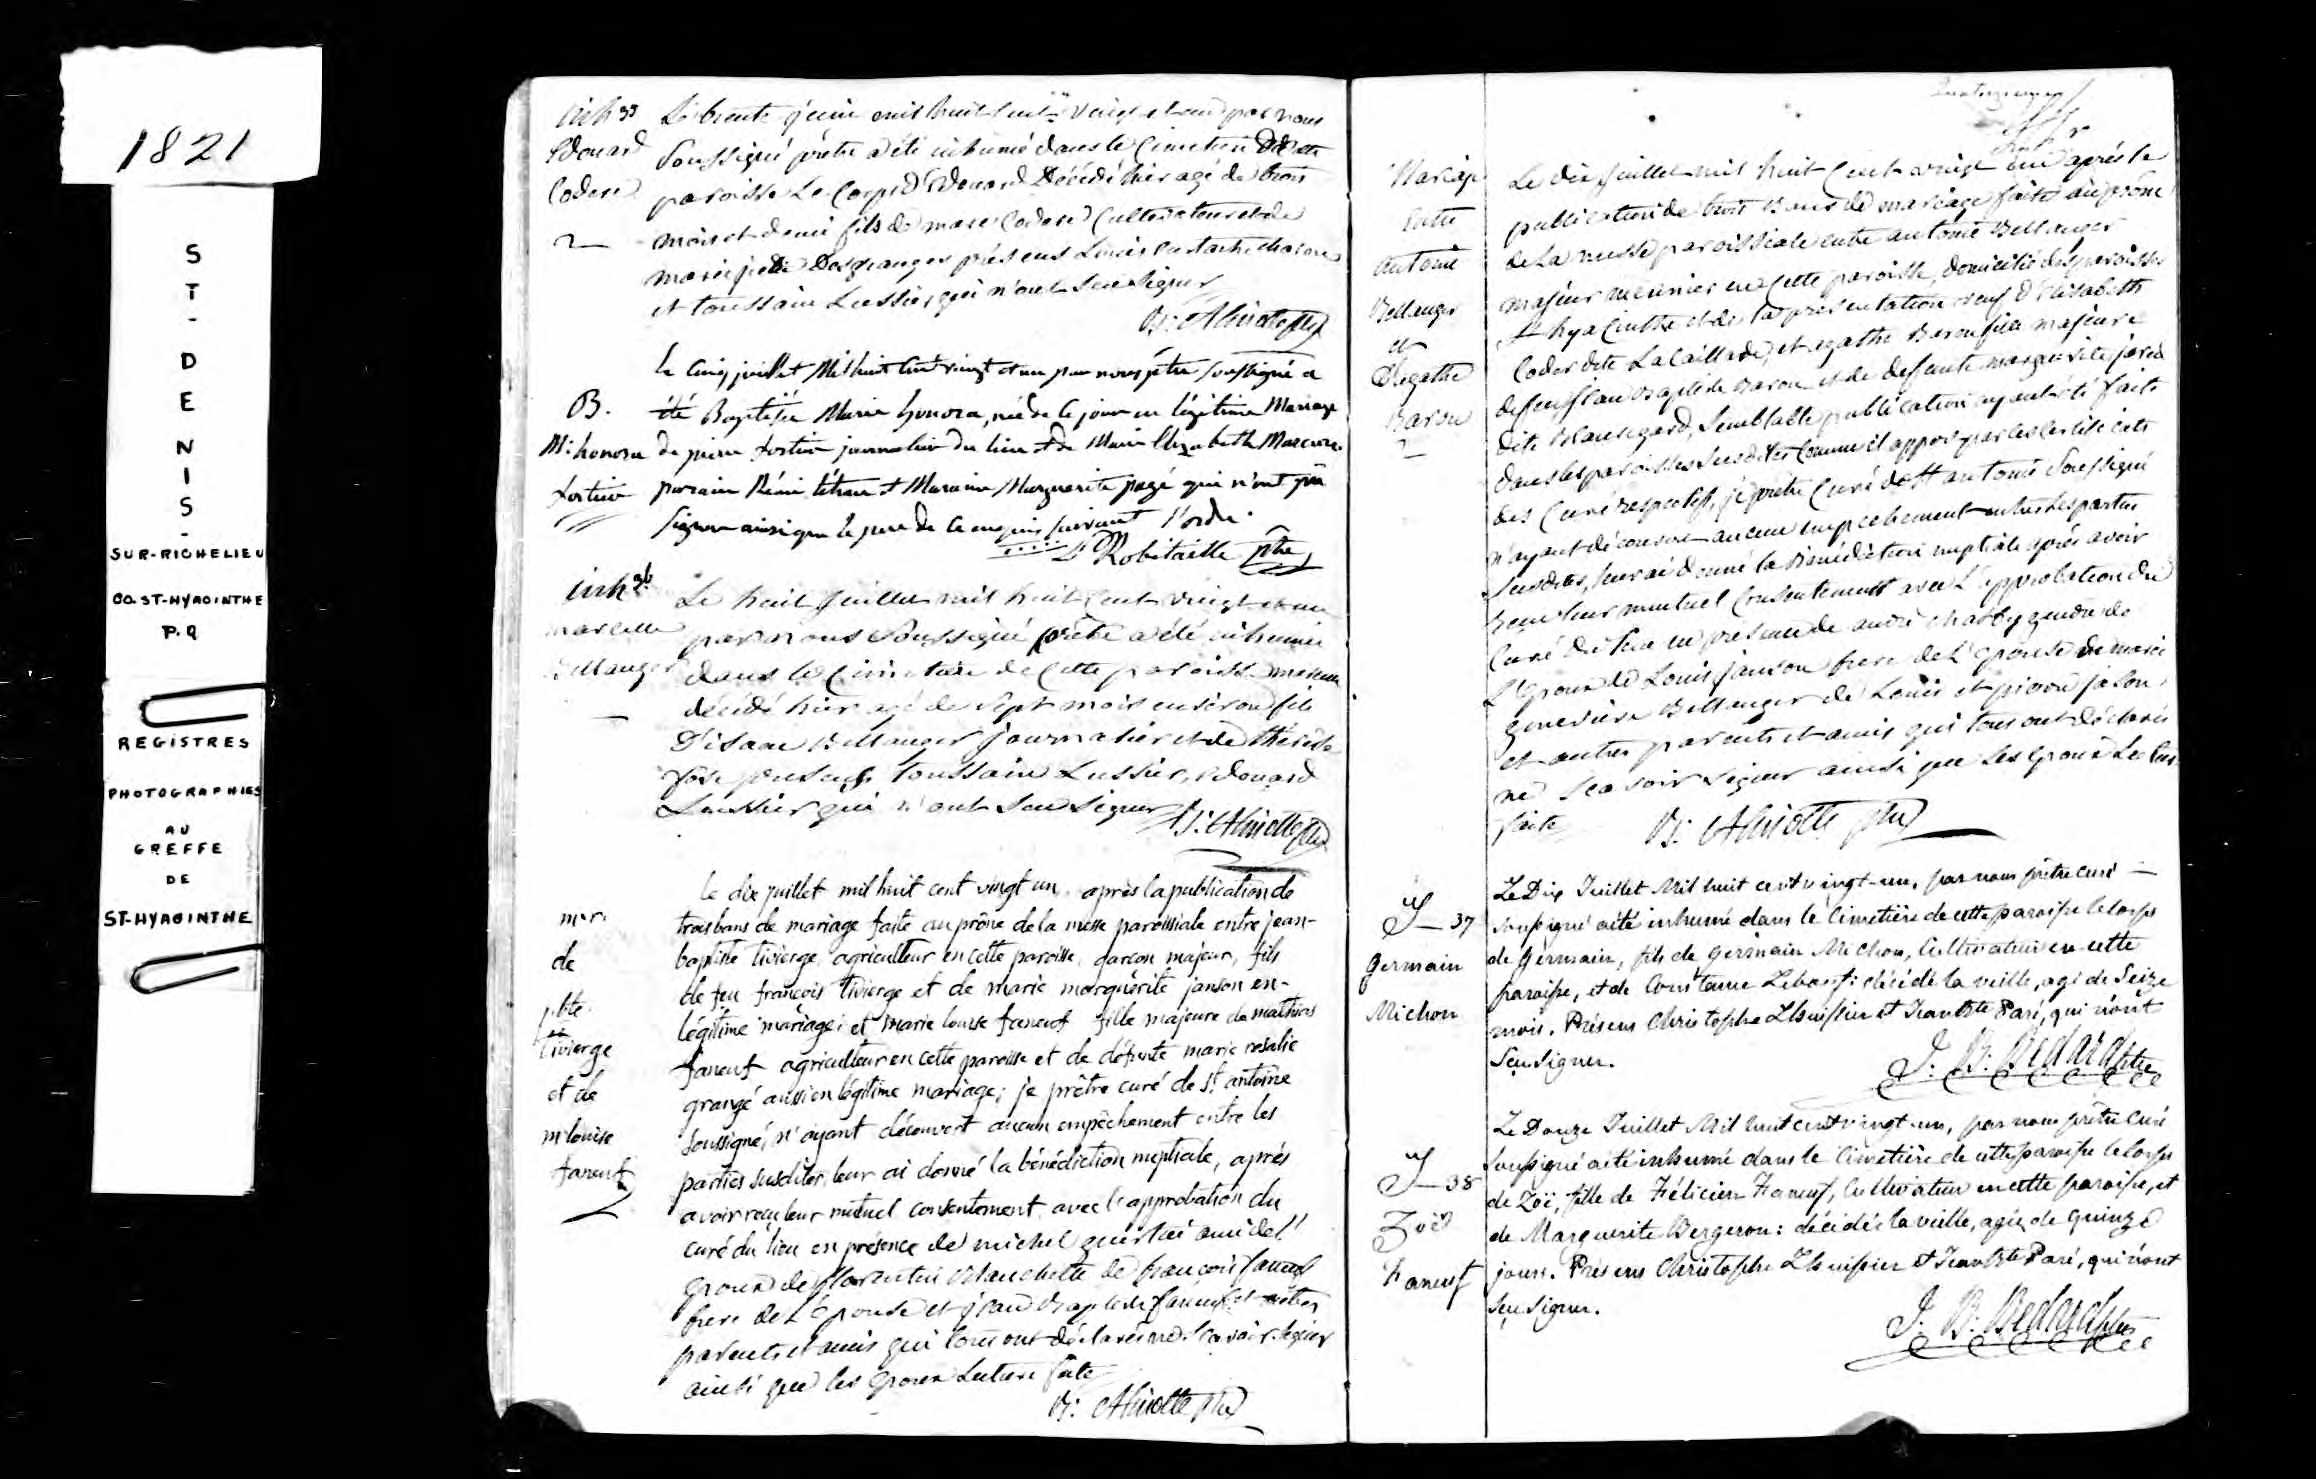 1821
ST-DENIS-
SUR-RICHELIEU
CO. ST-HYACINTHE
P.Q
REGISTRES
PHOTOGRAPHIES
AU
GREFFE
DE
ST-HYACINTHE
inh 35
Edouard
Codere
Le trente juin mil huit cent vingt et un par nous
soussigné prêtre a été inhumé dans le Cimetiere De cette
paroisse Le Corps D'Edouard Décédé hier agé de trois
mois et demi fils de marc Codere Cultivateur et de
marie Desgranges présens Louis
et toussain Lussier qui n'ont sceu signer
B: Alinotte ptre
B.
M: honora
fortier
le Cinq juillet Mil huit Cent vingt et un par nous ptre soussigné a
été Baptisée Marie honora, née de le jour en légitime Mariage
de pierre fortier journalier du lieu et de Marie Elizabeth
parain Rémi et Maraine Marguerite pagé qui n'ont pu
signer ainsi que le pere de ce enquis suivant l'ordre.
Robitaille ptre
inh 36
marcelle
Bellanger
Le huit Juillet mil huit Cent vingt et un
par nous Soussigné prêtre a été inhumé
dans le Cimetiere de Cette paroisse
décédé hier agé de Sept mois environ fils
D'isaac Bellanger journalier et de thérèse
toussain Lussier, Edouard
Lussier qui n'ont Sceu Signer
B: Alinotte ptre
mar.
de
j.bte.
tivierge
et de
m louise
faneuf
le dix juillet mil huit cent vingt un. après la publication de
trois bans de mariage faite au prône de la messe paroissiale entre jean-
baptiste tivierge, agriculteur en cette paroisse, garçon majeur, fils
de feu françois tivierge et de marie marguérite janson en-
légitime mariage; et marie louise faneuf fille majeure de mathias
faneuf agriculteur en cette paroisse et de défunte marie rosalie
grangé aussi en légitime mariage; je prêtre curé de st. antoine
soussigné, n'ayant découvert aucun empêchement entre les
parties susdites, leur ai donné la bénédiction nuptiale, après
avoir reçu leur mutuel consentement avec l'approbation du
curé du lieu en présence de michel ami de l'
Epoux de Blanchette de françois faneuf
frere de L'Epouse et jean Baptiste faneuf et autres
parents et amis qui tous ont déclaré ne Scavoir signer
ainsi que les Epoux Lecture faite
B: Alinotte ptre
Mariage
Entre
Antoine
Bellanger
et
Agathe
Baron
Le dix juillet mil huit Cent vingt un après la
publication de trois Bans de mariage faite au prône
de La messe paroissiale entre antoine Bellanger
majeur menuisier en Cette paroisse, domicilié des paroisses
St hyacinthe et de la présentation veuf d'Elisabeth
Coder dite LaCaillade, et agathe Baron fille majeure
defeu jean Baptiste Baron et de defunte marguerite jared
dite Beauregard, Semblable publication ayant été faite
dans les paroisses susdites Comme il appert par les Certificats
des Curé respectifs, je prêtre Curé de St antoine Soussigné
n'ayant découvert aucun empechement entre les parties
Susdites, leur ai donné la Bénédiction nuptiale après avoir
reçu leur mutuel Consentement avec L'approbation du
Curé du lieu en présence de andré gendre de
L'Epoux de Louis janson frere de L'Epouse de marie
genevieve Bellanger de Louis et pierre jason
et autres parents et amis qui tous ont déclarés
ne Scavoir signer ainsi que Les Epoux Lecture
faite
B: Alinotte ptre
S-37
Germain
Michon
Le Dix Juillet Mil huit cent vingt-un, par nous prêtre curé
soussigné a été inhumé dans le Cimetière de cette paroisse le corps
de Germain, fils de Germain Michon, Cultivateur en cette
paroisse, et de Constance Leboeuf: décédé la veille, agé de Seize
mois. Présens Christophe L'huissier et Jean Bte Paré, qui n'ont
Sçu Signer.
J. B. Bedard ptre
S-38
Zoë
Faneuf
Le Douze Juillet Mil huit cent vingt-un, par nous prêtre Curé
Soussigné a été inhumé dans le Cimetière de cette paroisse le corps
de Zoë, fille de Félicien Faneuf, Cultivateur en cette paroisse, et
de Marguerite Bergeron: décédée la veille, agée de quinze
jours. Présens Christophe L'huissier et Jean Bte Paré, qui n'ont
Sçu Signer.
J. B. Bedard ptre